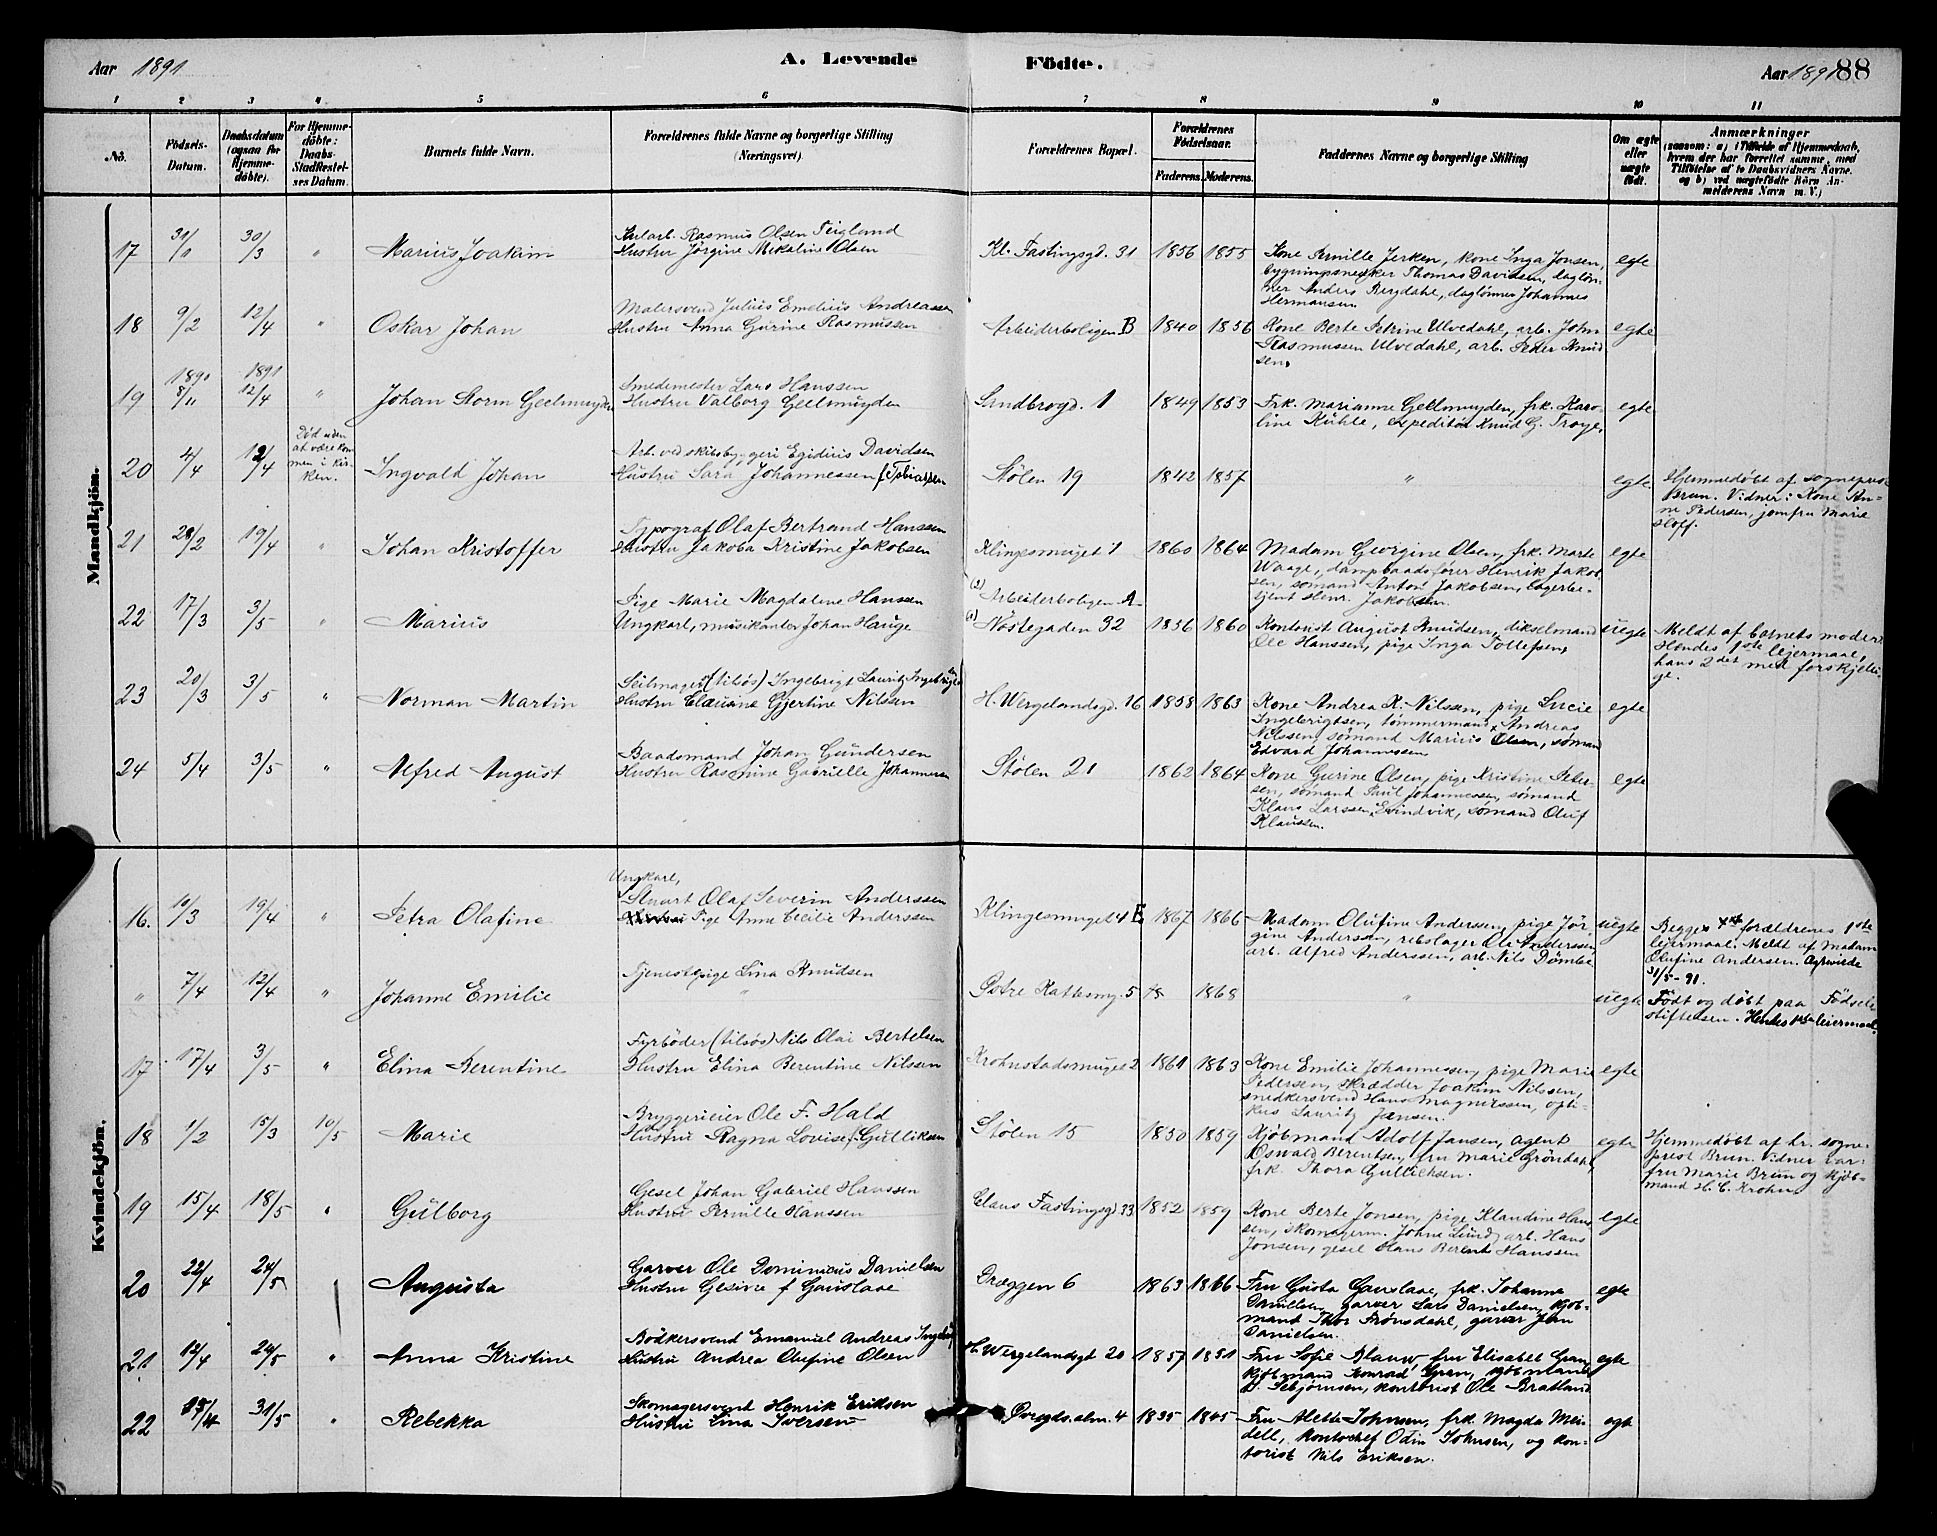 Aar 1891
A. Levende Födte.
Aar 1891 88
1 2 3 4 5 6 7 8 9 10 11
No.
Födsels-Datum.
Daabsdatum (ogsaa for Hjemme-döbte).
For Hjemme-döbte: Daabs-Stadfæstel-ses Datum.
Barnets fulde Navn.
Forældrenes fulde Navne og borgerlige Stilling (Næringsvei).
Forældrenes Bopæl.
Forældrenes Födselsaar.
Faderens. Moderens.
Faddernes Navne og borgerlige Stilling
Om ægte eller uægte födt.
Anmærkninger
(saasom: a) i Tilfælde af Hjemmedaab, hvem der har forrettet samme, med Tilföielse af to Daabsvidners Navne. og b) ved uægtefödte Börn Anmelderens Navn m. V.)
Mandkjön.
17 31/1 30/3 " Marius Joakim
Rasmus Olsen Teigland
Hustru Jörgine Mikaline Olsen
Kl. Fastingsgd. 31 1856 1855
Kone Pernille Jerken, kone Inga Jonsen,
bygningssnedker Thomas Davidsen, daglön-
ner Anders Bergdahl, daglönner Johannes
Hermansen
egte
18 9/2 12/4 " Oskar Johan
Malersvend Julius Emelius Andreassen
Hustru Anna Gurine Rasmussen
Arbeiderboligen B 1840 1856
Kone Berte Petrine Ulvedahl, arb. John
Rasmussen Ulvedahl, arb. Peder Knud
sen.
egte
19 1890 8/11 1891 12/4 " Johan Storm Geelmuyden
Smedemester Lars Hanssen
Hustru Valborg Geelmuyden
Sandbrogd. 1 1849 1853
Frk. Marianne Geelmuyden, frk. Karo-
line Kühle, expeditör Knud G. Troye,
egte
20 4/4 12/4
Död uden
at være kom
men i kir-
ken.
Ingvald Johan
Arb. ved skibsbyggeri Egidius Davidsen
Hustru Sara Johannessen f. Tobiassen
Stölen 19 1842 1857 " egte
Hjemmedöbt af sognepræst
Brun. Vidner: Kone An-
ne Pedersen, jomfru Marie
Hoff.
21 28/2 19/4 " Johan Kristoffer
Typograf Olaf Bertrand Hanssen
Hustru Jakoba Kristine Jakobsen
Klingesmuget 1 1860 1864
Madam Georgine Olsen, frk. Marte
Waage, dampbaadsförer Henrik Jakob
sen, sömand Anton Jakobsen, lagerbe-
tjent Henr. Jakobsen.
egte
22 17/3 3/5 " Marius
Pige Marie Magdalene Hansen
Ungkarl, musikanter Johan Hauge
(2) Arbeiderboligen A
(1) Nöstegaden 32 1836 1860
Kontorist August Knudsen, dikselmand
Ole Hanssen, pige Inga Tollefsen,
uegte
Meldt af barnets moder
Hendes 1ste leiermaal,
hans 2det med forskjelli-
ge.
23 20/3 3/5 " Norman Martin
Seilmager (tilsös) Ingebrigt Lauritz Ingebrigtsen
Hustru Elauiana Gjertine Nilssen
H. Wergelandsgd. 16 1858 1863
Kone Andrea K. Nilssen, pige Lucie
Ingebrigtsen, tömmermand Andreas
Nilssen, sömand Marius Olsen, sömand
Edvard Johannessen
egte
24 5/4 3/5 " Alfred August
Baadsmand Johan Gundersen
Hustru Rasmine Gabrielle Johannesen
Stölen 21 1862 1864
Kone Gurine Olsen, pige Kristine Peter-
sen, sömand Paul Johannessen, sömand
Klaus Larssen Evindvik, sömand Oluf
Klaussen.
egte
Kvindekjön.
16. 10/3 19/4 " Petra Olafine
Ungkarl,
Stuart Olaf Severin Anderssen
Pige Anne Cecilie Anderssen
Klingesmuget 4 E 1867 1866
Madam Olufine Andersen, pige Jör
gine Andersen, rebslager Ole Anderssen
arb. Alfred Anderssen, arb. Nils Dömbe
uegte
Begge forældrenes 1ste
leiermaal. Meldt af Madam
Olufine Andersen.
31/5-91.
" 7/4 12/4 " Johanne Emilie
Tjenestepige Lina Knudsen
"
Östre Kattesmg. 5 1868 " uegte
Födt og döbt paa Födsels
stiftelsen. Hendes 1ste leiermaal.
17 17/4 3/5 " Elina Berentine
Fyrböder (tilsös) Nils Olai Bertelsen
Hustru Elina Berentine Nilssen
Krohnstadsmuget 2 1861 1863
Kone Emilie Johannessen, pige Marie
Pedersen, skrædder Joakim Nilssen,
snedkersvend Hans Magnussen, opti-
kus Lauritz Jansen.
egte
18 1/2 15/3 10/5 Marie
Bryggerieier Ole F. Hald
Hustru Ragna Lovise f. Gulliksen
Stölen 15 1850 1859
Kjöbmand Adolf Jansen, agent
Osvald Berentsen, fru Marie Gröndahl
frk. Thora Gullichsen.
egte
Hjemmedöbt af hr. sogne-
prest Brun. Vidner var:
fru Marie Brun og kjöb-
mand H. C. Krohn
19 15/4 18/5 " Gulborg
Gesel Johan Gabriel Hanssen
Hustru Pernille Hanssen
Claus Fastingsgd 33 1852 1859
Kone Berte Jonsen, pige Klaudine Hans
sen, skomagerm. Johne Lund, arb. Hans
Jonsen, gesel Hans Berent Hanssen
egte
20 22/4 24/5 " Augusta
Garver Ole Dominicus Danielsen
Hustru Gesine f Gauslaae
Dræggen 6 1863 1866
Fru Gusta Gauslaae, frk. Johanne
Danielsen, garver Lars Danielsen, kjöb-
mand Thor Frönsdahl, garver John
Danielsen.
egte
21 12/4 24/5 " Anna Kristine
Bödkersvend Emanuel Andreas
Hustru Andrea Olufine Olsen
H. Wergelandsgt 20 1857 1851
Fru Sofie Blauw, fru Elisabet Gran,
kjöbmand Konrad Gran, kjöbmand
D. Sebjörnsen, kontorist Ole Bratland
egte
22 15/4 31/5 " Rebekka
Skomagersvend Henrik Eriksen
Hustru Lina Iversen
Övregds. alm. 4 1835 1845
Fru Alette Johnsen, frk. Magda Mei-
dell, kontochef Odin Johnsen, og kon-
torist Nils Eriksen.
egte